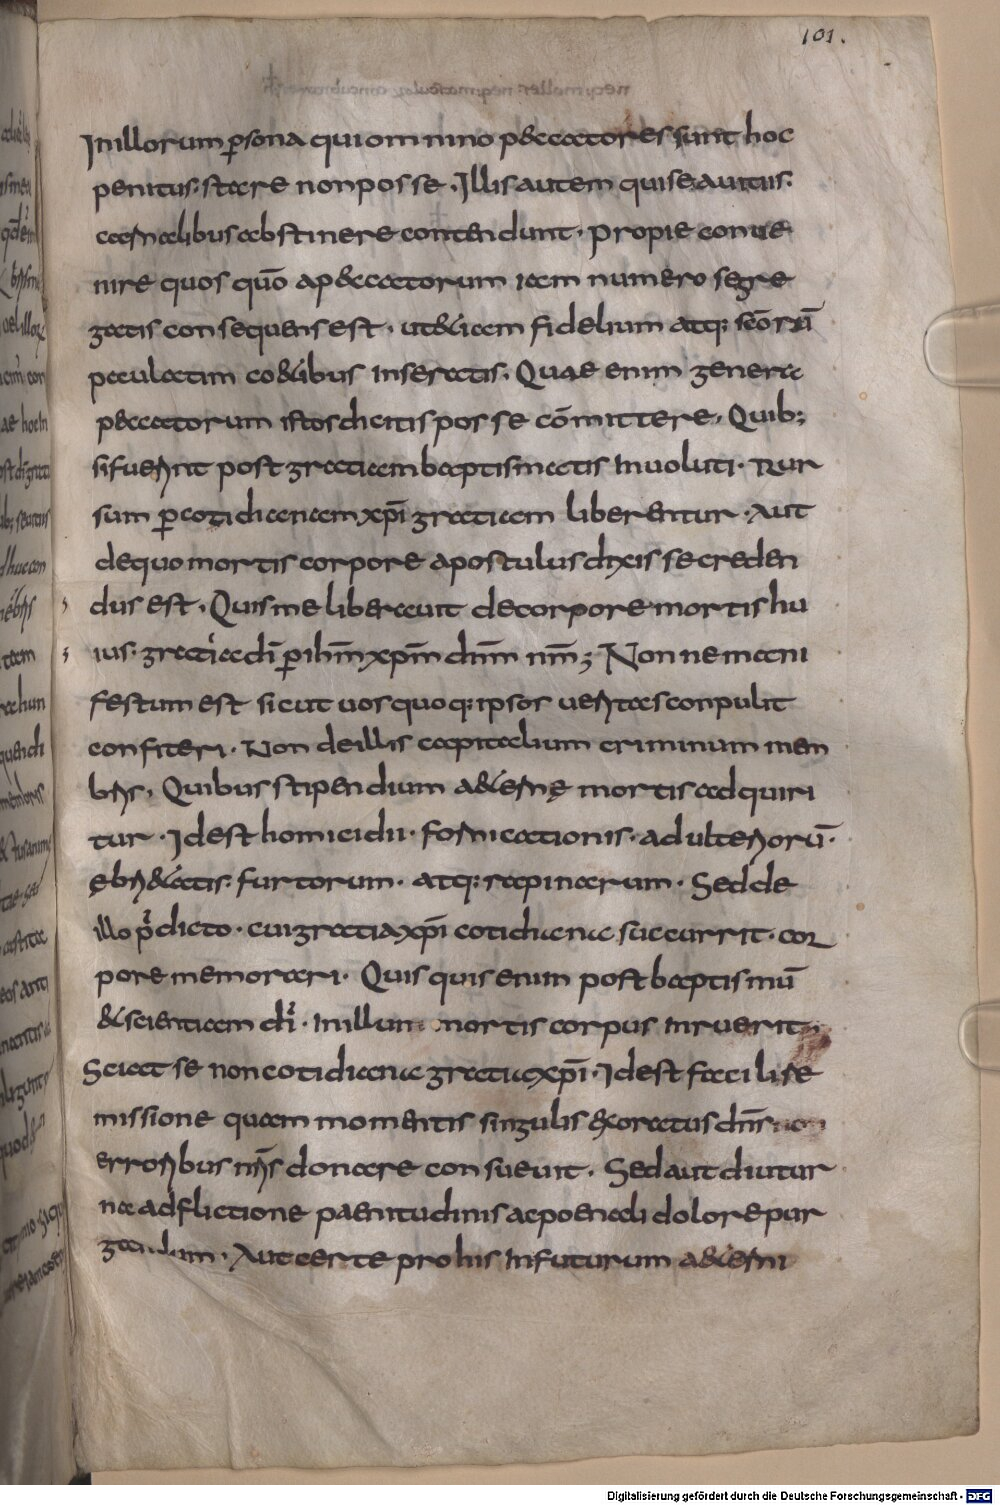 101.
Inillorum p̱sona qui omnino p&ccatores sunt hoc
penitus· stare non posse · Illis autem qui se a uitiis·
carnalibus abstinere contendunt · propie conue
nire quos quō a p&ccatorum iam numero segre
gatis consequens est · ut &iam fidelium atq: scōrū
paulatim co&ibus inseratis · Quae enim genera
p&ccatorum istos dicitis posse cōmittere · Quib;
si fuerint post gratiam baptismatis inuoluti · Rur
sum p̱ cotidianam xp̄i gratiam liberentur · Aut
de quo mortis corpore apostulus dixisse creden
dus est · Quis me liberauit de corpore mortis hu
ius· gratia dī p̱ ihm̄ xpm̄ dnm̄ nm̄; Nonne mani
festum est sicut uos quoq: ipsos ueritas conpulit
confiteri · Non de illis capitalium criminum mem
bris · Quibus stipendium a&ernę mortis adquiri
tur · Idest homicidii · fornicationis · adulteriorū ·
ębri&atis· furtorum · atq: rapinarum · Sed de
illo p̄dicto · cui gratia xp̄i cotidiana succurrit · cor
pore memorari · Quis quis enim post baptismū
&scientiam dī · In illum mortis corpus inruerit
Sciat se non cotidiana gratia xp̄i · Idest facili re
missione quam momentis singulis exoratus dn̄s
erroribus nr̄is donare consueuit · Sed aut diutur
na adflictione paenitudinis ac poenali dolore pur
gandum · Aut certe pro his in futurum a&erni
Digitalisierung gefördert durch die Deutsche Forschungsgemeinschaft - DFG